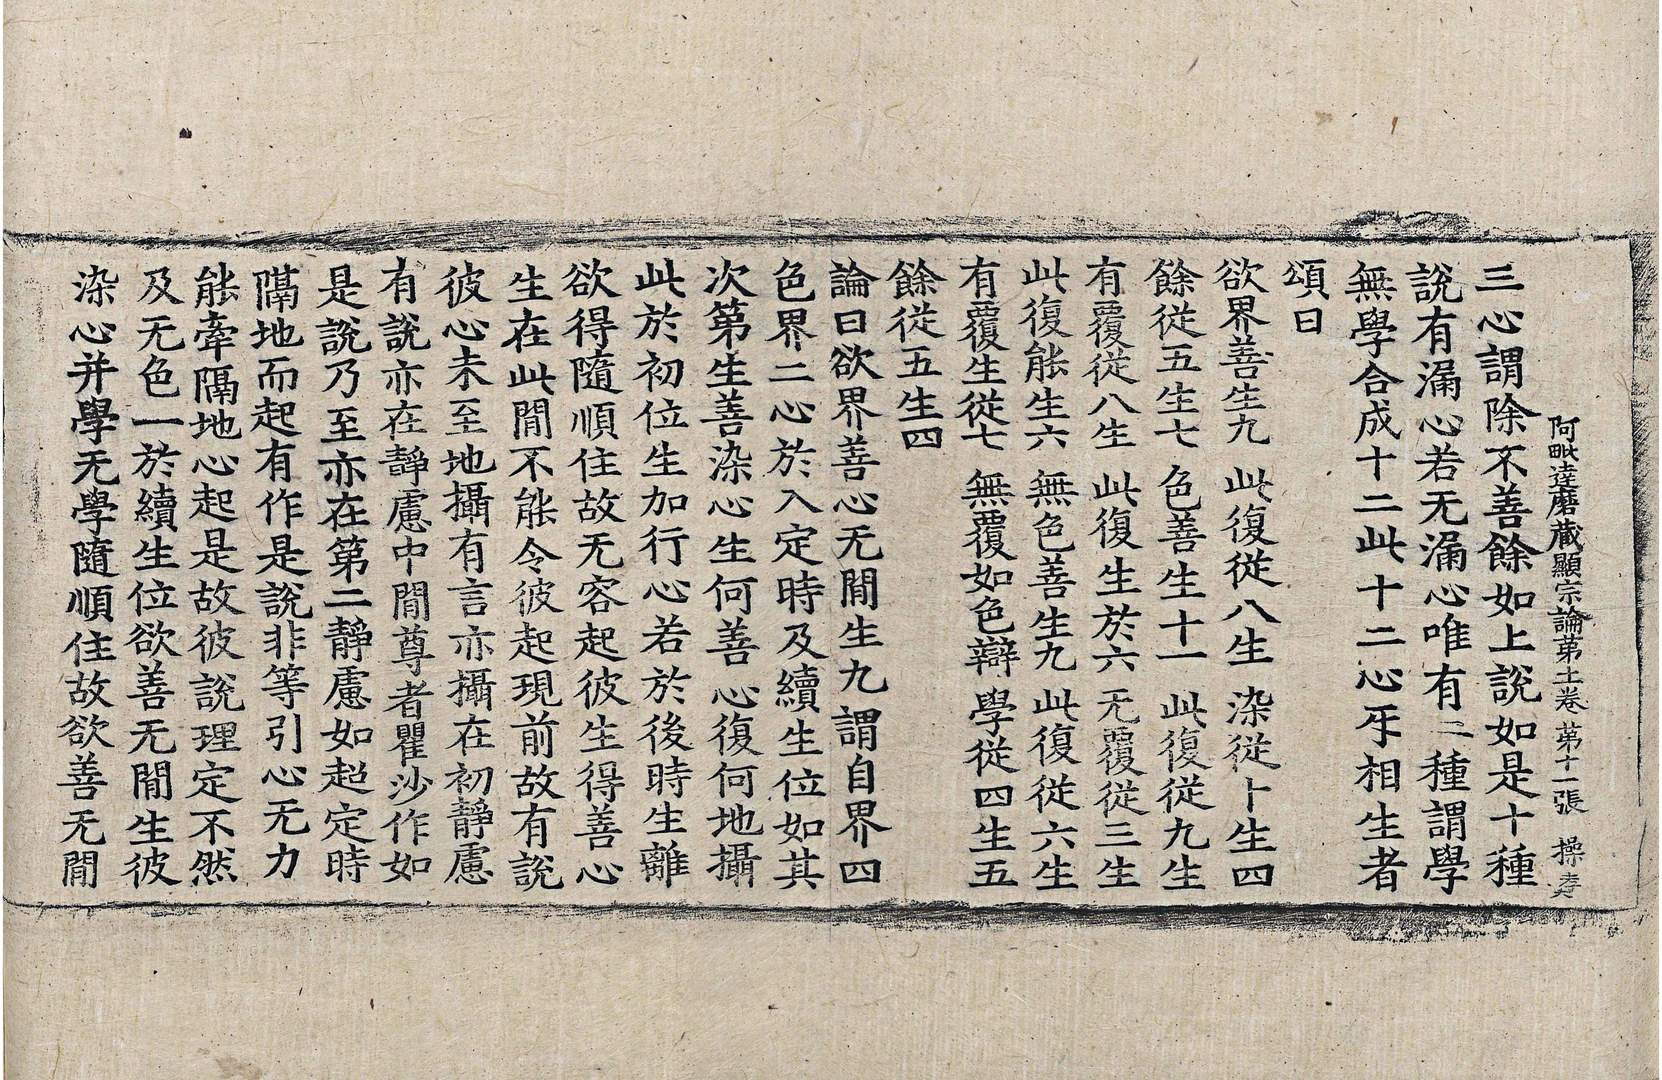 阿毗達磨藏顯宗論苐十二卷 苐十一張 操
三心謂除不善餘如上說如是十種
說有漏心若无漏心唯有二種謂學
無學合成十二此十二心牙相生者
頌曰
欲界善生九 此復從八生 染從十生四
餘從五生七 色善生十一 此復從九生
有覆從八生 此復生於六 无覆從三生
此復能生六 無色善生九 此復從六生
有覆生從七 無覆如色辯 學從四生五
餘從五生四
論曰欲界善心无閒生九謂自界四
色界二心於入定時及續生位如其
次第生善染心生何善心復何地攝
此於初位生加行心若於後時生離
欲得隨順住故无容起彼生得善心
生在此閒不能令彼起現前故有說
彼心未至地攝有言亦攝在初靜慮
有說亦在靜慮中閒尊者瞿沙作如
是說乃至亦在第二靜慮如超定時
隔地而起有作是說非等引心无力
能牽隔地心起是故彼說理定不然
及无色一於續生位欲善无閒生彼
染心并學无學隨順住故欲善无閒